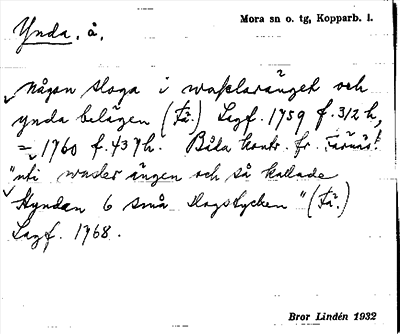 Ynda, å,
Mora sn o. tg, Kopparb. l.
någon sloga i wasslaränget och
ynda belägen (Fä.) Lagf. 1759 f. 312 h,
= 1760 f. 437 h. Båda kontr. fr. Färnäs!
"uti wasler ängen och så kallade
Hyndan 6 små slogstycken" (Fä.)
Lagf. 1768.
Bror Lindén 1932